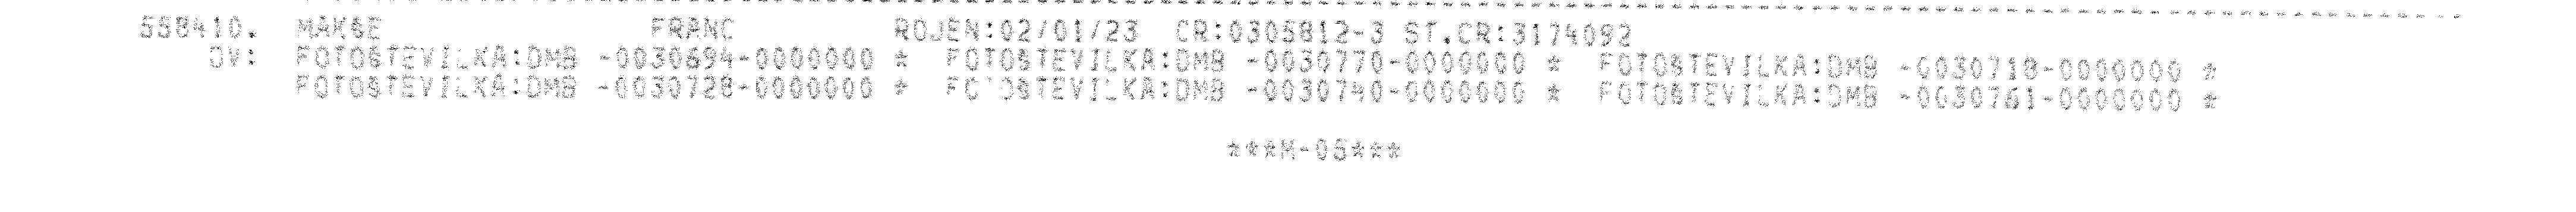 558410. MAKSE FRANC ROJEN:02/01/23 CR:0305812-3 ST.CR:3174092
DV: FOTOSTEVILKA:DMB -0030694-0000000 * FOTOSTEVILKA:DMB -0030770-0000000 * FOTOSTEVILKA:DMB -0030718-0000000 *
FOTOSTEVILKA:DMB -0030728-0000000 * FOTOSTEVILKA:DMB -0030740-0000000 * FOTOSTEVILKA:DMB -0030761-0000000 *
***M-05***